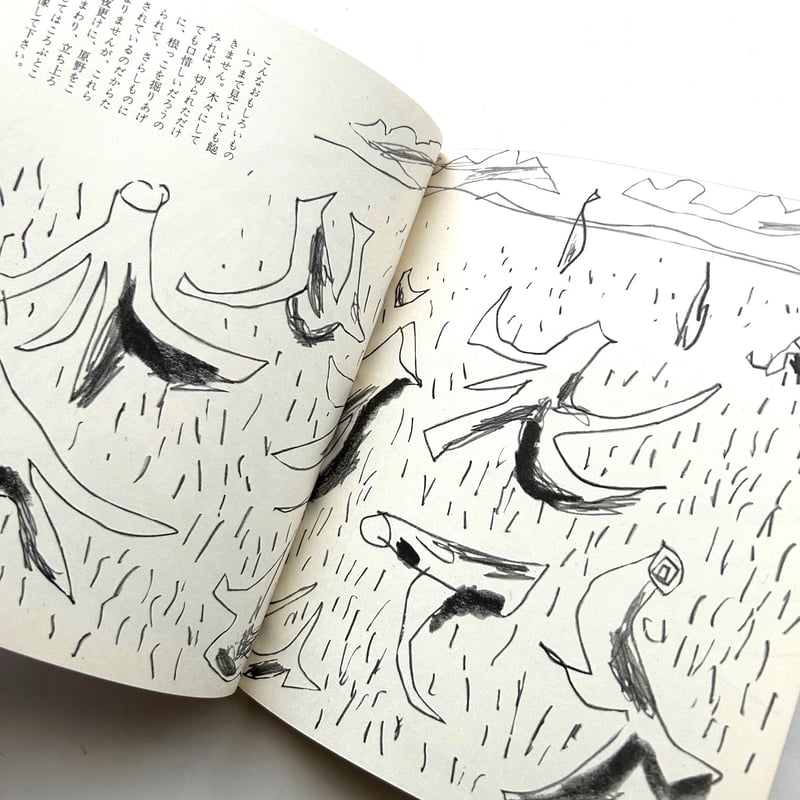 こんなおもしろいもの
いつまで見ていても飽
きません。木々にして
みれば、切られただけ
でも口惜しいだろうの
に、根っこを掘りあげ
られて、さらしものに
されているのだからた
りませんが、これら
夜更けに、
まわり、原野をこ
立ち上ろ
てはころぶとこ
像して下さい。